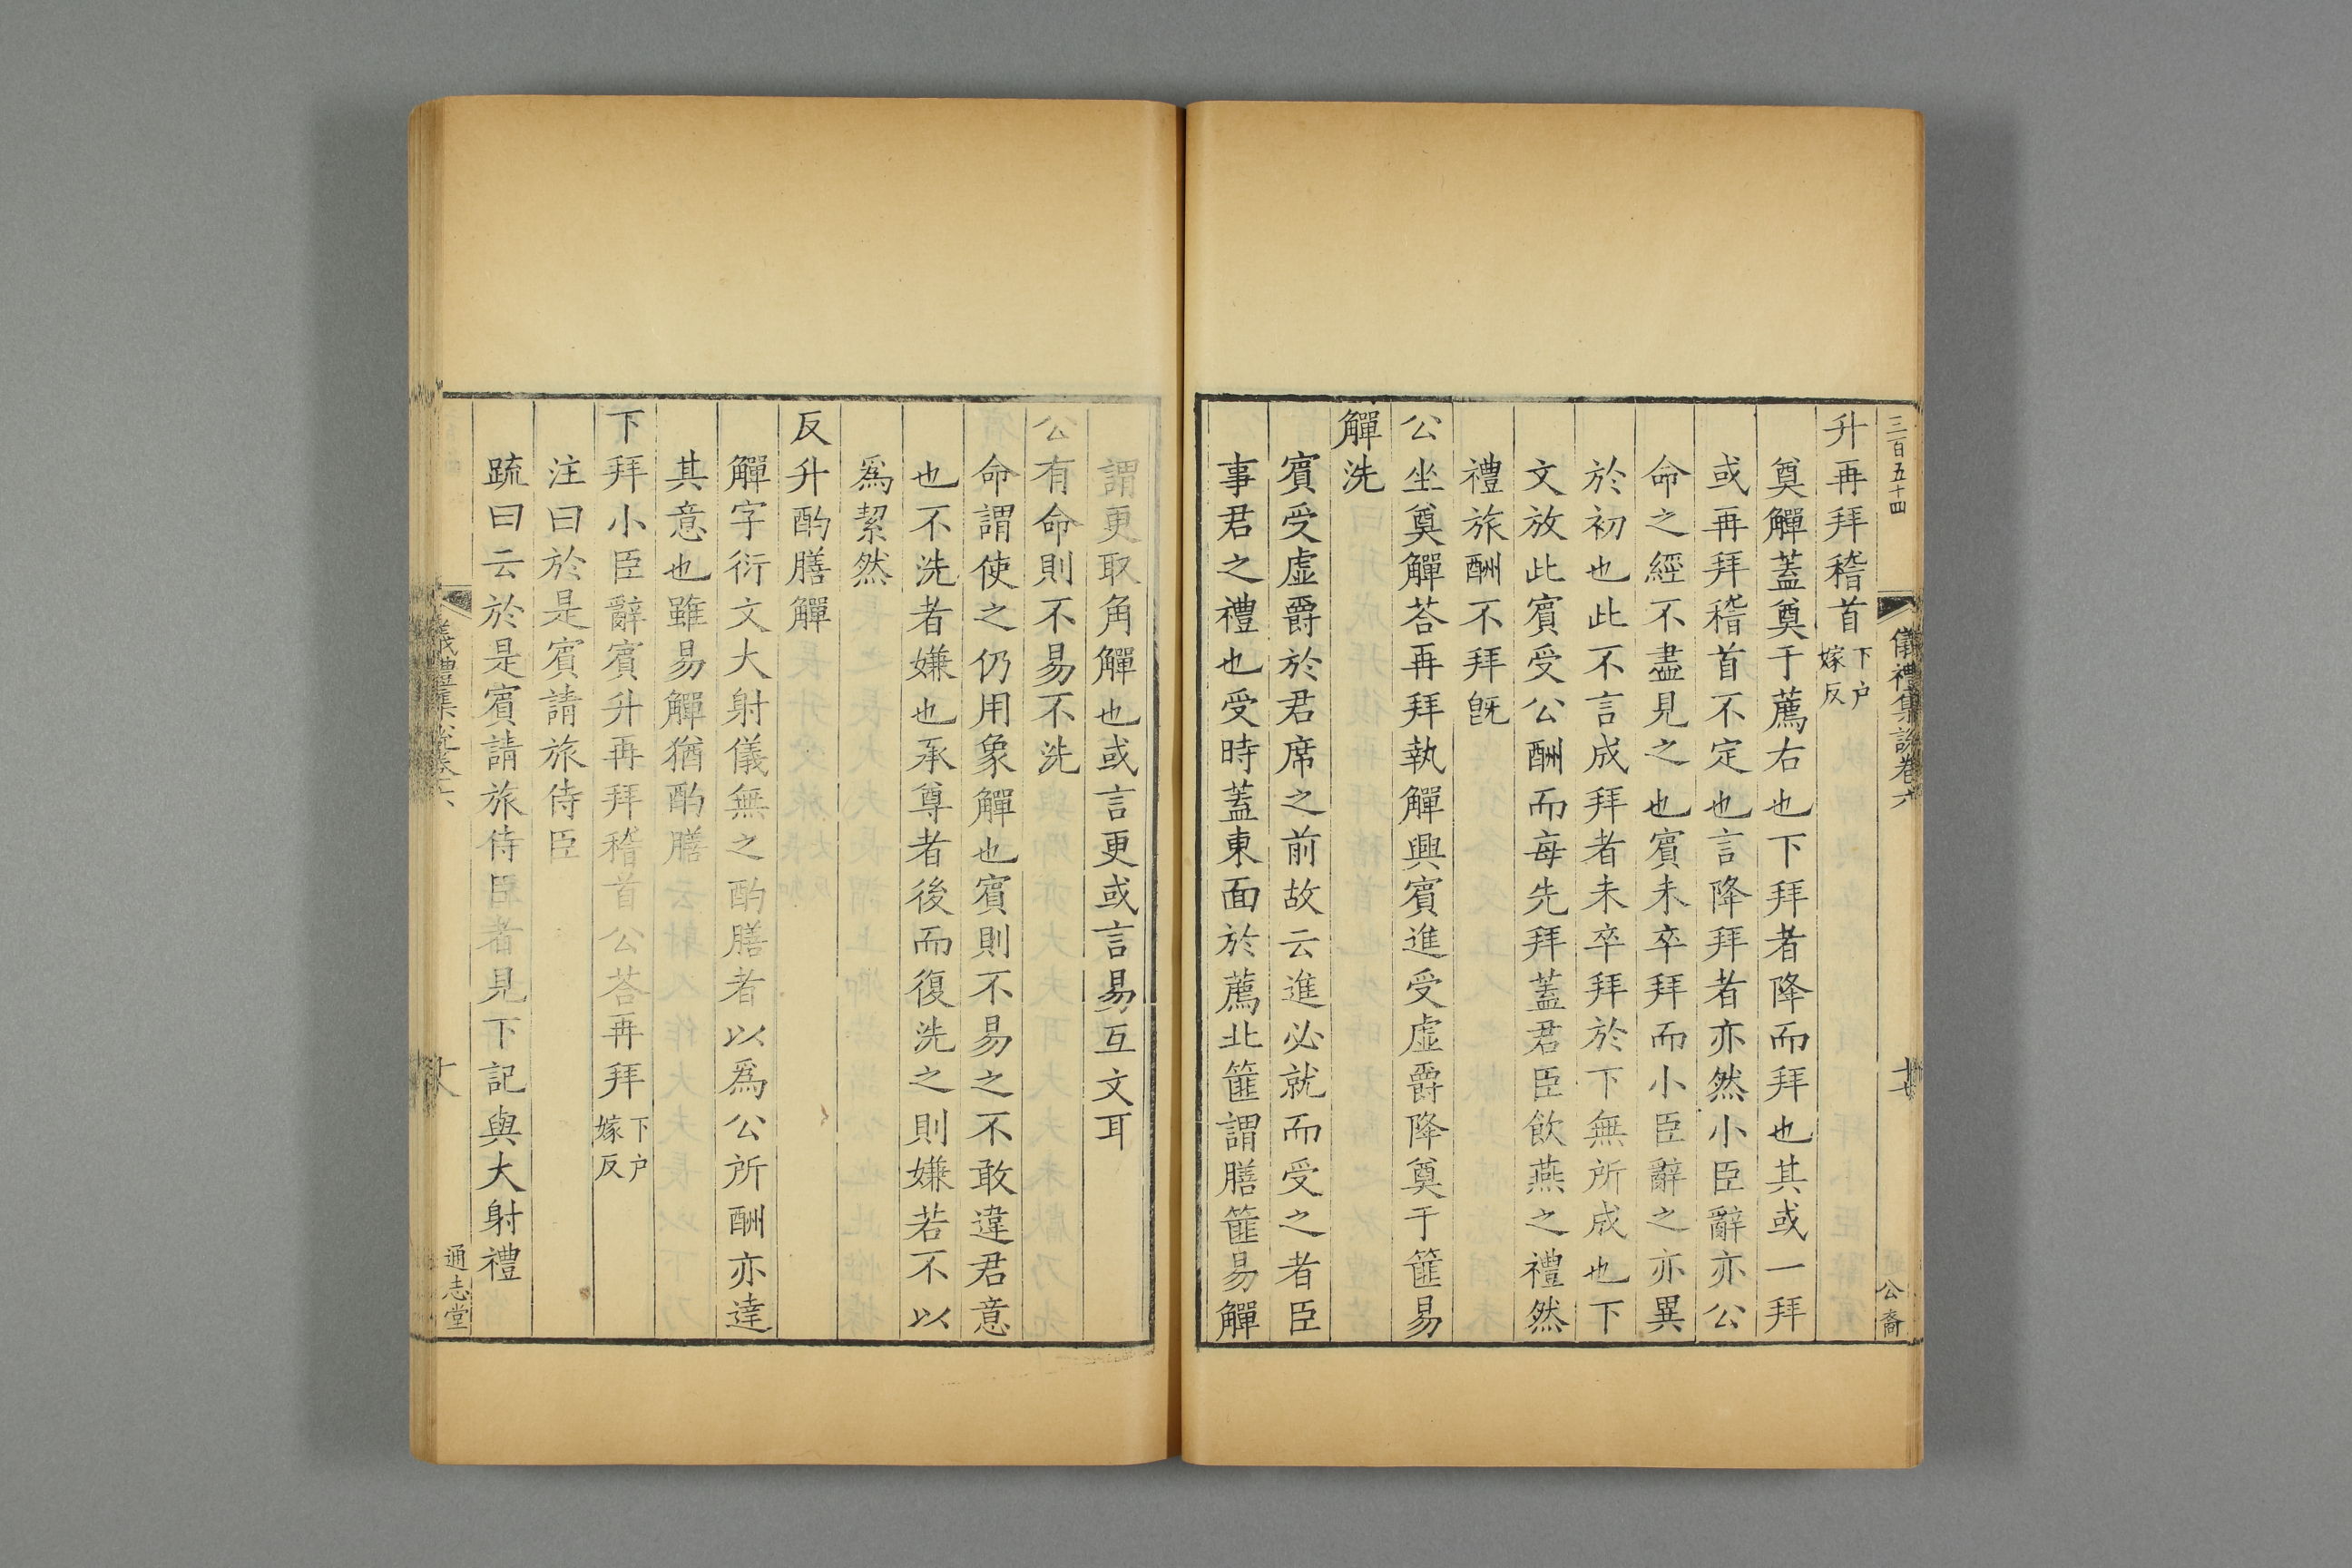 三百五十四
儀禮集說卷六
公裔
升再拜稽首下户嫁反
奠觶蓋奠于薦右也下拜者降而拜也其或一拜
或再拜稽首不定也言降拜者亦然小臣辭亦公
命之經不盡見之也賓未卒拜而小臣辭之亦異
於初也此不言成拜者未卒拜於下無所成也下
文放此賓受公酬而每先拜蓋君臣飲燕之禮然
禮旅酬不拜旣
公坐奠觶荅再拜執觶興賓進受虛爵降奠于篚易
觶洗
賓受虛爵於君席之前故云進必就而受之者臣
事君之禮也受時蓋東面於薦北篚謂膳篚易觶
謂更取角觶也或言更或言易互文耳
公有命則不易不洗
命謂使之仍用象觶也賓則不易之不敢違君意
也不洗者嫌也承尊者後而復洗之則嫌若不以
爲絜然
反升酌膳觶
觶字衍文大射儀無之酌膳者以爲公所酬亦達
其意也雖易觶猶酌膳
下拜小臣辭賓升再拜稽首公荅再拜下户嫁反
注曰於是賓請旅侍臣
疏曰云於是賓請旅侍臣者見下記與大射禮
儀禮集說卷六
通志堂